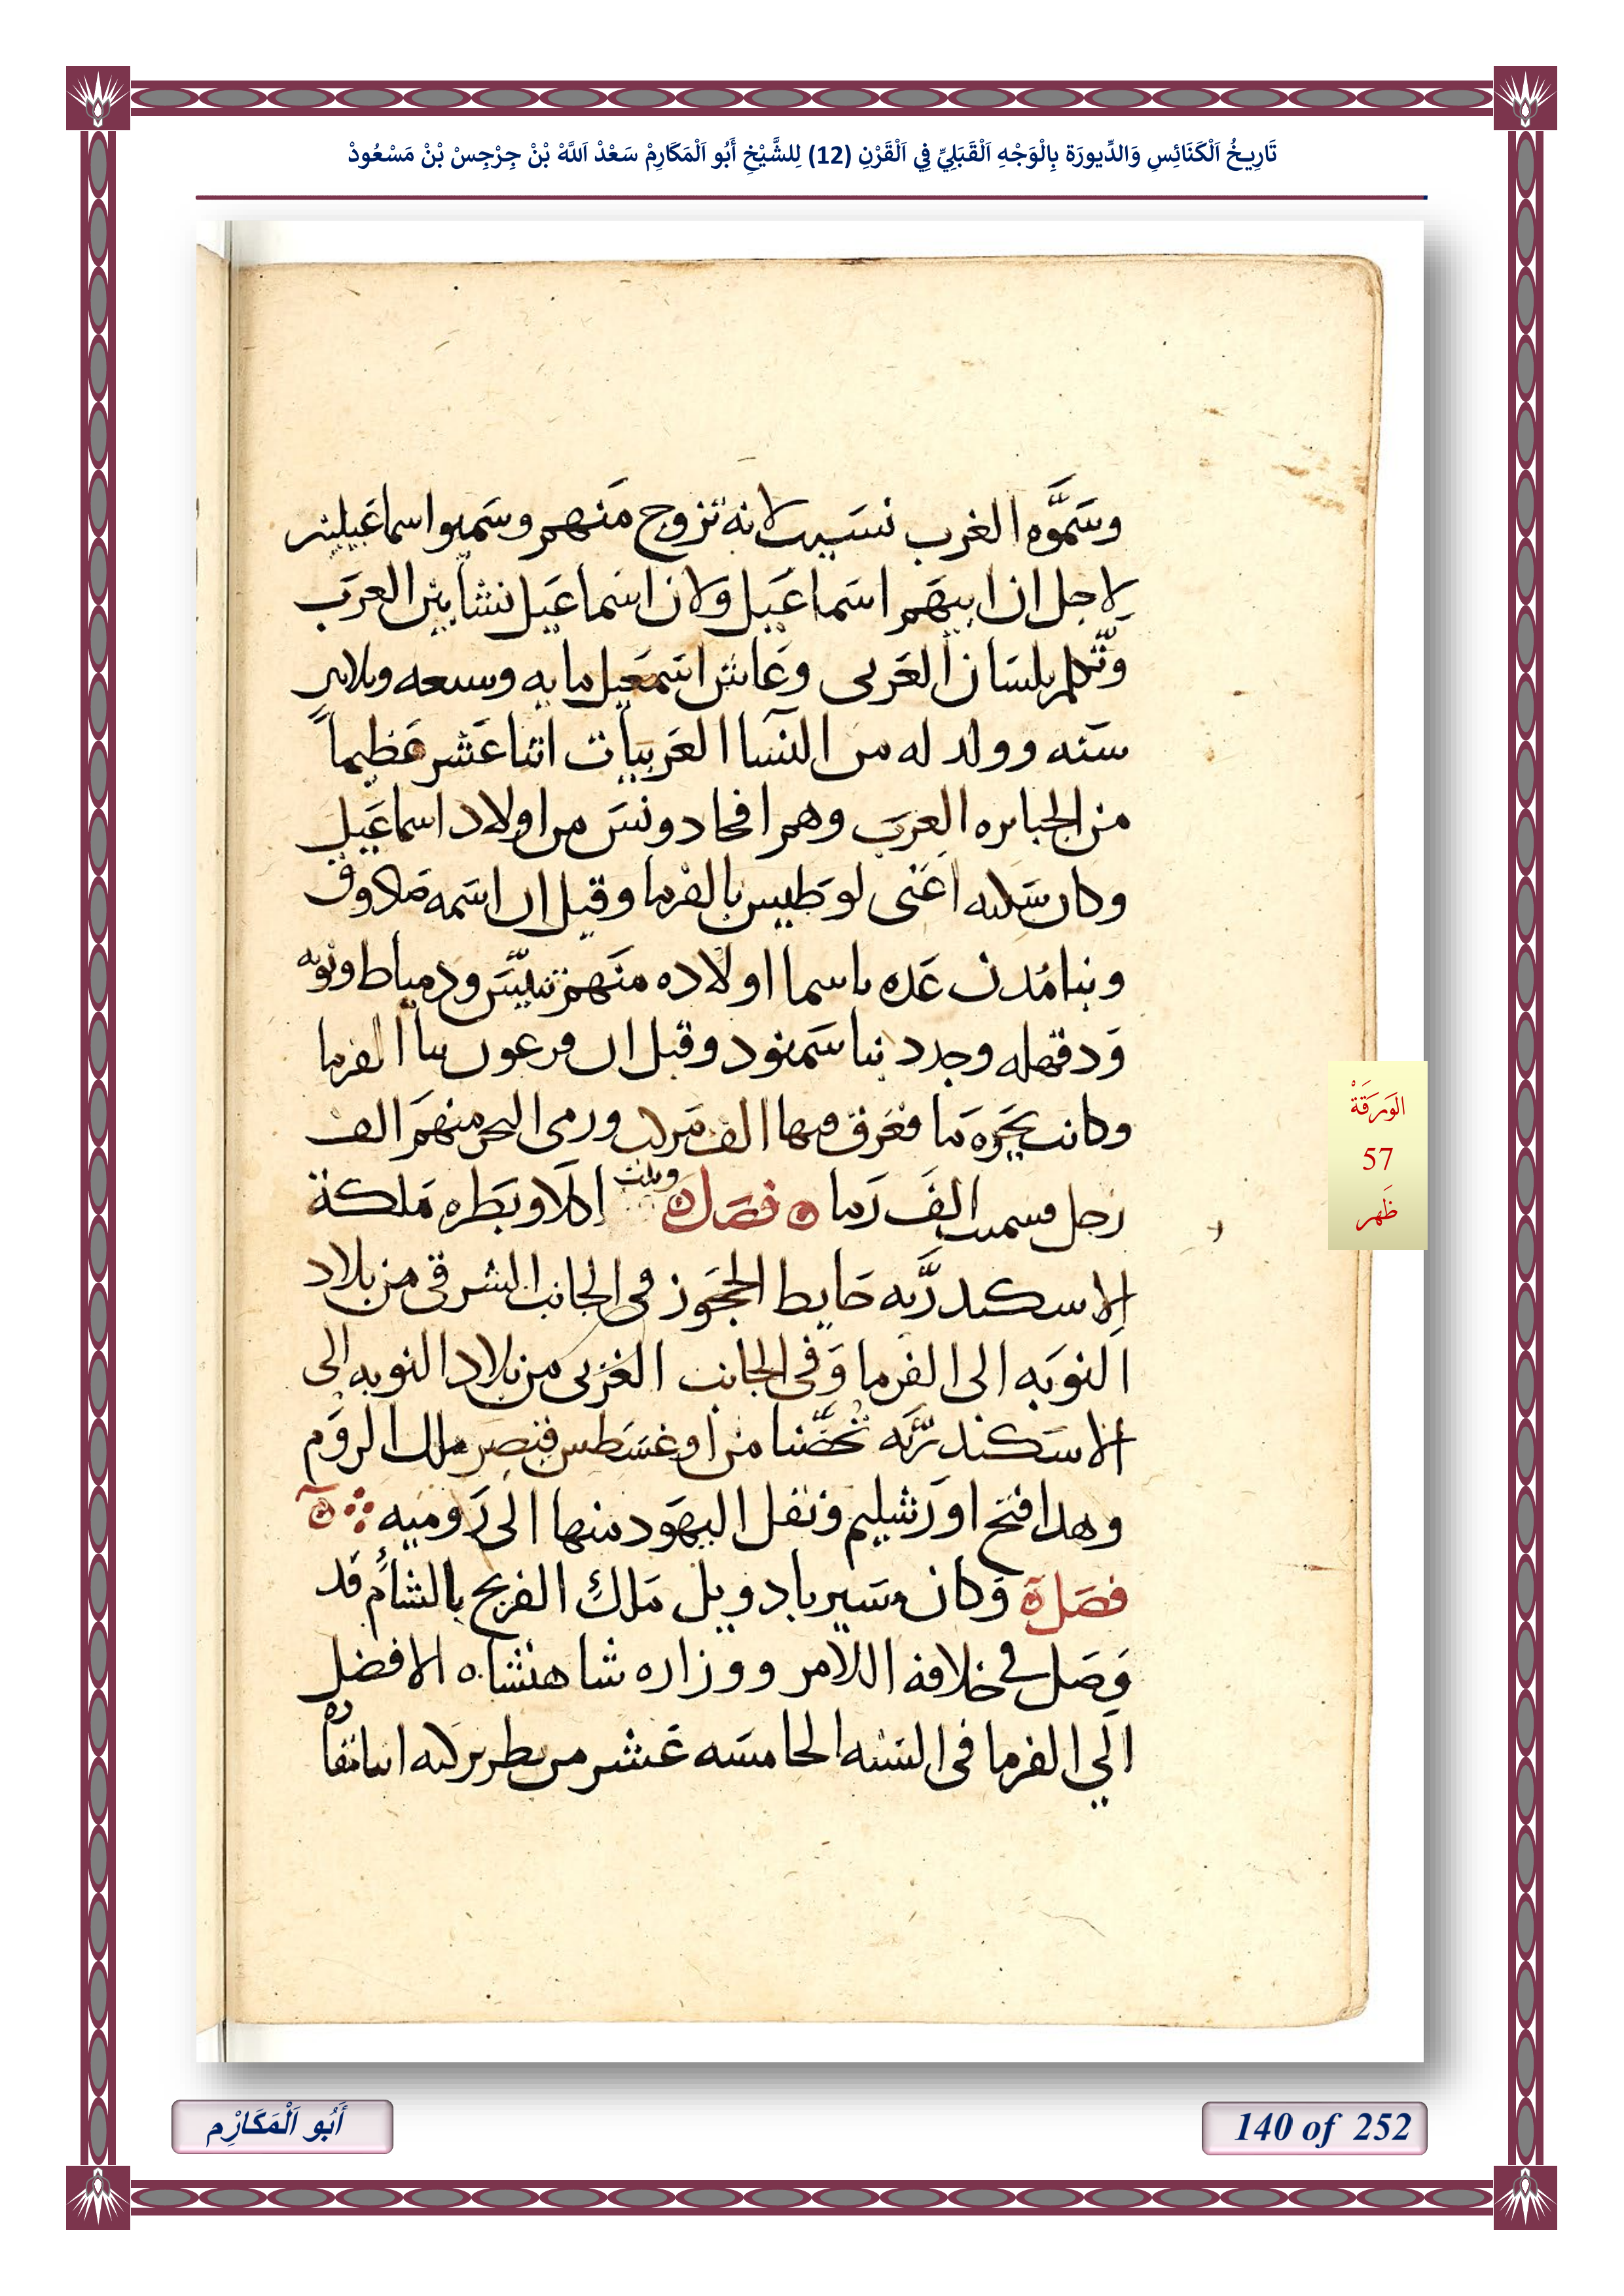 تَارِيخُ اَلْكَنَائِسِ وَالدِّيورَة بِالْوَجْهِ اَلْقَبَلِيِّ فِي اَلْقَرْنِ (12) لِلشَّيْخِ أَبُو اَلْمَكَارِمْ سَعْدْ اَللَّهْ بْنْ جِرْجِسْ بْنْ مَسْعُودْ
وسَمَّوه العرب نسيب لانه تزوج منهم وسميوا اسماعيلين
لاجل ان ابيهم اسماعيل ولان اسماعيل نشا بين العرب
وتكلم بلسان العربى وعاش اسمعيل مايه وسبعه وثلاثين
سنه وولد له من النسا العربيات اثنا عشر عظيماً
من الجبابره العرب وهم افخاد ونس من اولاد اسماعيل
وكان سكنه اعنى لوطيس بالفرما وقيل ان اسمه صلاوق
وبنا مُدن عده باسما اولاده منهم تنيس ودمياط وتونه
ودقهله وجدد بنا سمنود وقيل ان فرعون بنا الفرما
وكانت بحره ما فغرق فيها الف مركب ورمى البحر منهم الف
رجل فسميت الف رما فصل وبنت اكلاوبطره ملكة
الاسكندريه حايط الحجوز فى الجانب الشرقى من بلاد
النوبه الى الفرما وفى الجانب الغربى من بلاد النوبه الى
الاسكندريه تحصّنا من اوغسطس قيصر ملك الروم
وهدا فتح اورشليم ونقل اليهود منها الى روميه
فصل وكان سير بادويل ملك الفرنج بالشام قد
وصل فى خلافه اللامر ووزاره شاهنشاه الافضل
الي الفرما فى السنه الخامسه عشر من بطريركيه
الوَرَقَةْ
57
ظَهر
أَبُو اَلْمَكَارْمِ
140 of 252